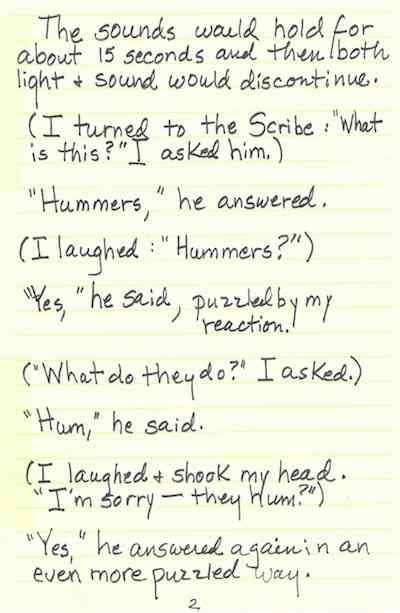 The sounds would hold for
about 15 seconds and then both
light + sound would discontinue.
(I turned to the Scribe: "What
is this?" I asked him.)
"Hummers," he answered.
(I laughed: "Hummers?")
"Yes," he said, puzzled by my
reaction.
("What do they do?" I asked.)
"Hum," he said.
(I laughed + shook my head.
"I'm sorry — they Hum?")
"Yes," he answered again in an
even more puzzled way.
2